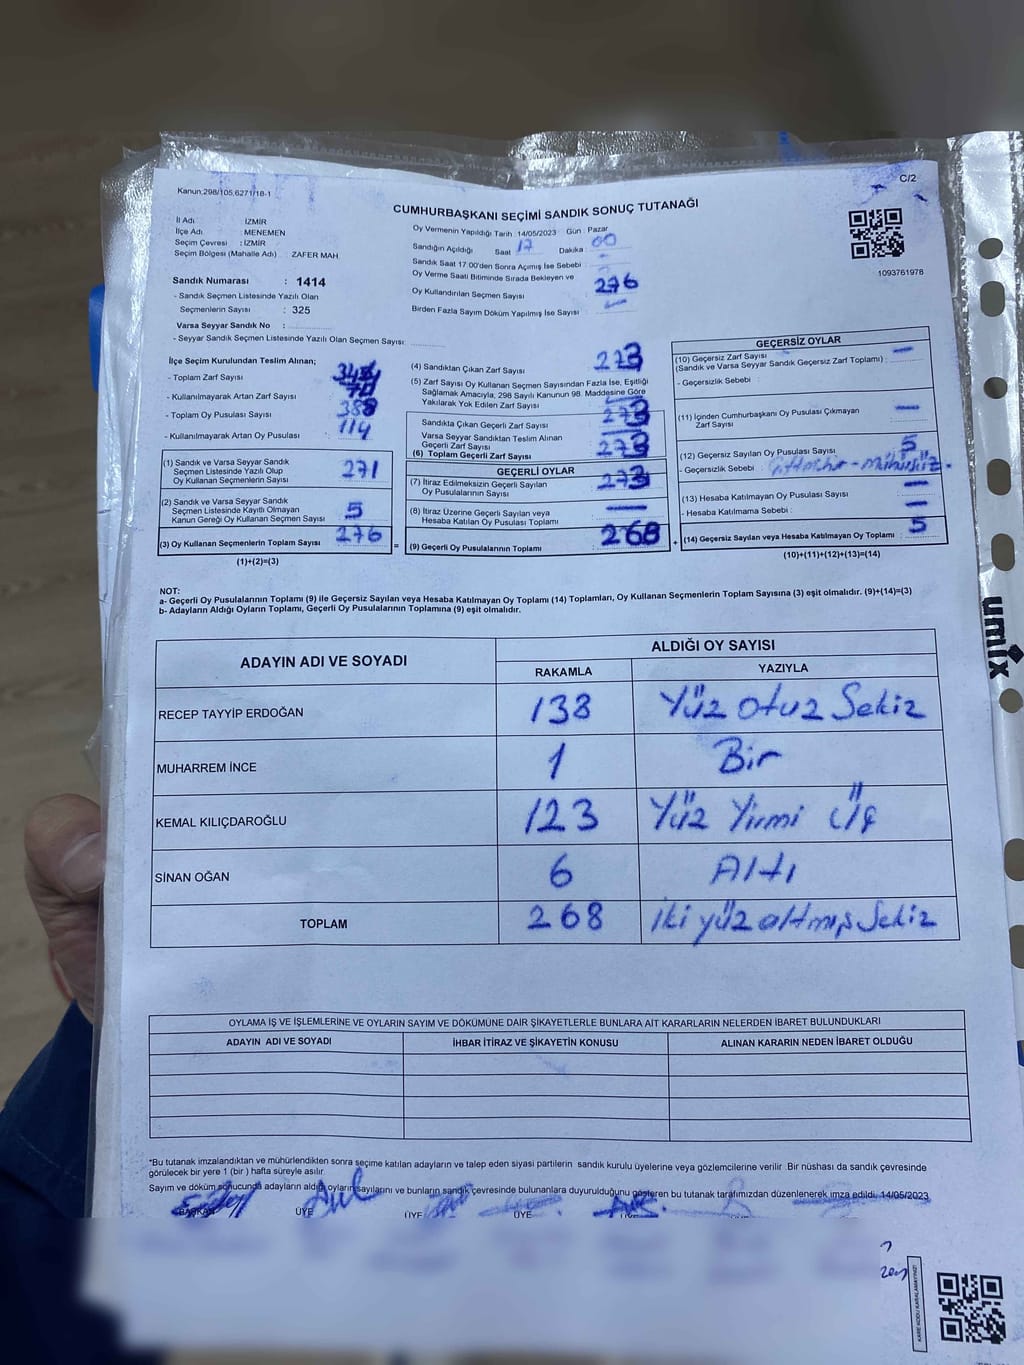 Kanun,298/105,6271/18-1
C/2
CUMHURBAŞKANI SEÇİMİ SANDIK SONUÇ TUTANAĞI
İl Adı : İZMİR
İlçe Adı : MENEMEN
Seçim Çevresi : İZMİR
Seçim Bölgesi (Mahalle Adı) : ZAFER MAH
Sandık Numarası : 1414
- Sandık Seçmen Listesinde Yazılı Olan
Seçmenlerin Sayısı : 325
Varsa Seyyar Sandık No :
- Seyyar Sandık Seçmen Listesinde Yazılı Olan Seçmen Sayısı:
Oy Vermenin Yapıldığı Tarih : 14/05/2023 Gün : Pazar
Sandığın Açıldığı Saat 17 Dakika 00
Sandık Saat 17.00'den Sonra Açımış İse Sebebi :
Oy Verme Saati Bitiminde Sırada Bekleyen ve
Oy Kullandırılan Seçmen Sayısı : 276
Birden Fazla Sayım Döküm Yapılmış İse Sayısı : -
1093761978
İlçe Seçim Kurulundan Teslim Alınan;
- Toplam Zarf Sayısı
- Kullanılmayarak Artan Zarf Sayısı :
- Toplam Oy Pusulası Sayısı : 388
- Kullanılmayarak Artan Oy Pusulası : 114
(1) Sandık ve Varsa Seyyar Sandık
Seçmen Listesinde Yazılı Olup
Oy Kullanan Seçmenlerin Sayısı 271
(2) Sandık ve Varsa Seyyar Sandık
Seçmen Listesinde Kayıtlı Olmayan
Kanun Gereği Oy Kullanan Seçmen Sayısı 5
(3) Oy Kullanan Seçmenlerin Toplam Sayısı 276
(1)+(2)=(3)
(4) Sandıktan Çıkan Zarf Sayısı : 273
(5) Zarf Sayısı Oy Kullanan Seçmen Sayısından Fazla İse, Eşitliği
Sağlamak Amacıyla, 298 Sayılı Kanunun 98. Maddesine Göre
Yakılarak Yok Edilen Zarf Sayısı : -
Sandıkta Çıkan Geçerli Zarf Sayısı : 273
Varsa Seyyar Sandıktan Teslim Alınan
Geçerli Zarf Sayısı : -
(6) Toplam Geçerli Zarf Sayısı : 273
GEÇERLİ OYLAR
(7) İtiraz Edilmeksizin Geçerli Sayılan
Oy Pusulalarının Sayısı : 273
(8) İtiraz Üzerine Geçerli Sayılan veya
Hesaba Katılan Oy Pusulası Toplamı : -
= (9) Geçerli Oy Pusulalarının Toplamı : 268
GEÇERSİZ OYLAR
(10) Geçersiz Zarf Sayısı : -
(Sandık ve Varsa Seyyar Sandık Geçersiz Zarf Toplamı) :
- Geçersizlik Sebebi :
(11) İçinden Cumhurbaşkanı Oy Pusulası Çıkmayan
Zarf Sayısı : -
(12) Geçersiz Sayılan Oy Pusulası Sayısı : 5
- Geçersizlik Sebebi : Çift Mühür - Mühürsüz.
(13) Hesaba Katılmayan Oy Pusulası Sayısı : -
- Hesaba Katılmama Sebebi : -
+ (14) Geçersiz Sayılan veya Hesaba Katılmayan Oy Toplamı : 5
(10)+(11)+(12)+(13)=(14)
NOT:
a- Geçerli Oy Pusulalarının Toplamı (9) ile Geçersiz Sayılan veya Hesaba Katılmayan Oy Toplamı (14) Toplamları, Oy Kullanan Seçmenlerin Toplam Sayısına (3) eşit olmalıdır. (9)+(14)=(3)
b- Adayların Aldığı Oyların Toplamı, Geçerli Oy Pusulalarının Toplamına (9) eşit olmalıdır.
ADAYIN ADI VE SOYADI
ALDIĞI OY SAYISI
RAKAMLA YAZIYLA
RECEP TAYYİP ERDOĞAN 138 Yüz Otuz Sekiz
MUHARREM İNCE 1 Bir
KEMAL KILIÇDAROĞLU 123 Yüz Yirmi Üç
SİNAN OĞAN 6 Altı
TOPLAM 268 iki yüz altmış Sekiz
OYLAMA İŞ VE İŞLEMLERİNE VE OYLARIN SAYIM VE DÖKÜMÜNE DAİR ŞİKAYETLERLE BUNLARA AİT KARARLARIN NELERDEN İBARET BULUNDUKLARI
ADAYIN ADI VE SOYADI İHBAR İTİRAZ VE ŞİKAYETİN KONUSU ALINAN KARARIN NEDEN İBARET OLDUĞU
*Bu tutanak imzalandıktan ve mühürlendikten sonra seçime katılan adayların ve talep eden siyasi partilerin sandık kurulu üyelerine veya gözlemcilerine verilir Bir nüshası da sandık çevresinde
görülecek bir yere 1 (bir ) hafta süreyle asılır.
Sayım ve döküm sonucunda adayların aldığı oyların sayılarını ve bunların sandık çevresinde bulunanlara duyurulduğunu gösteren bu tutanak tarafımızdan düzenlenerek imza edildi, 14/05/2023
BAŞKAN ÜYE ÜYE ÜYE ÜYE
KARE KODU KARALAMAYINIZ!
umix